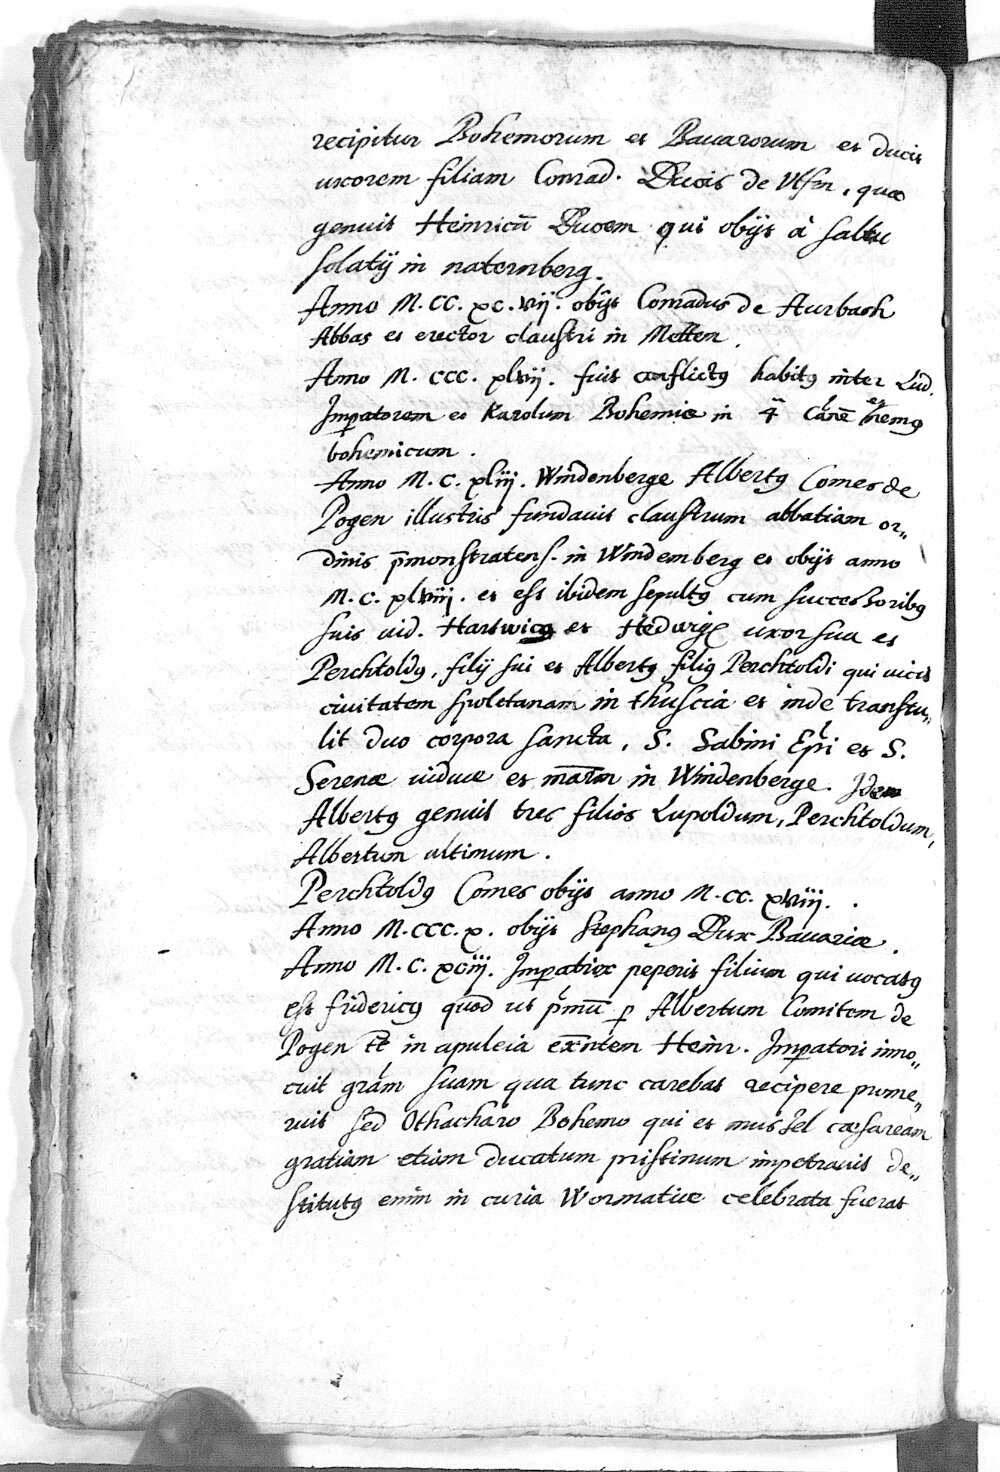 recipitur Bohemorum et Bauarorum et ducis
uxorem filiam Conrad. Ducis de , quae
genuit Heinricū Ducem qui obijt à saltu
solatij in naternberg.
Anno M. CC. xc. vij. obijt Conradus de Aurbach
Abbas et erector claustri in Metten.
Anno M. CCC. xlvij. fuit conflictꝰ habitꝰ inter Lud.
Imꝑatorem et Karolum Bohemiæ in nemꝰ
bohemicum.
Anno M. C. xliij. Windenberge Albertꝰ Comes de
Pogen illustris fundauit claustrum abbatiam or„
dinis p̄monstratens. in Windemberg et obijt anno
M. C. xlviij. et est ibidem sepultꝰ cum successoribꝰ
suis uid. Hartwicꝰ et Hedwig uxor sua et
Perchtoldꝰ, filij sui et Albertꝰ filiꝰ Perchtoldi qui uicit
ciuitatem spoletanam in thuscia et inde transtu„
lit duo corpora sancta, S. Sabini Epi et S.
Serenæ uiduæ et mar̄m in Windenberge. Idem
Albertꝰ genuit tres filios Lupoldum, Perchtoldum,
Albertum ultimum.
Perchtoldꝰ Comes obijt anno M. CC. xviij.
Anno M. CCC. x. obijt Stephanꝰ Dux Bauariæ.
Anno M. C. xciij. Imꝑatrix peperit filium qui uocatꝰ
est fridericꝰ quod ut pꝛ̄mū ꝑ Albertum Comitem de
Pogen tc̄ in apuleia ex̄ntem Heinr. Imꝑatori inno„
cuit grām suam qua tunc carebat recipere prome„
ruit sed Othacharo Bohemo qui et cæsaream
gratiam etiam ducatum pristinum impetrauit de„
stitutꝰ enim in curia Wormatiæ celebrata fuerat